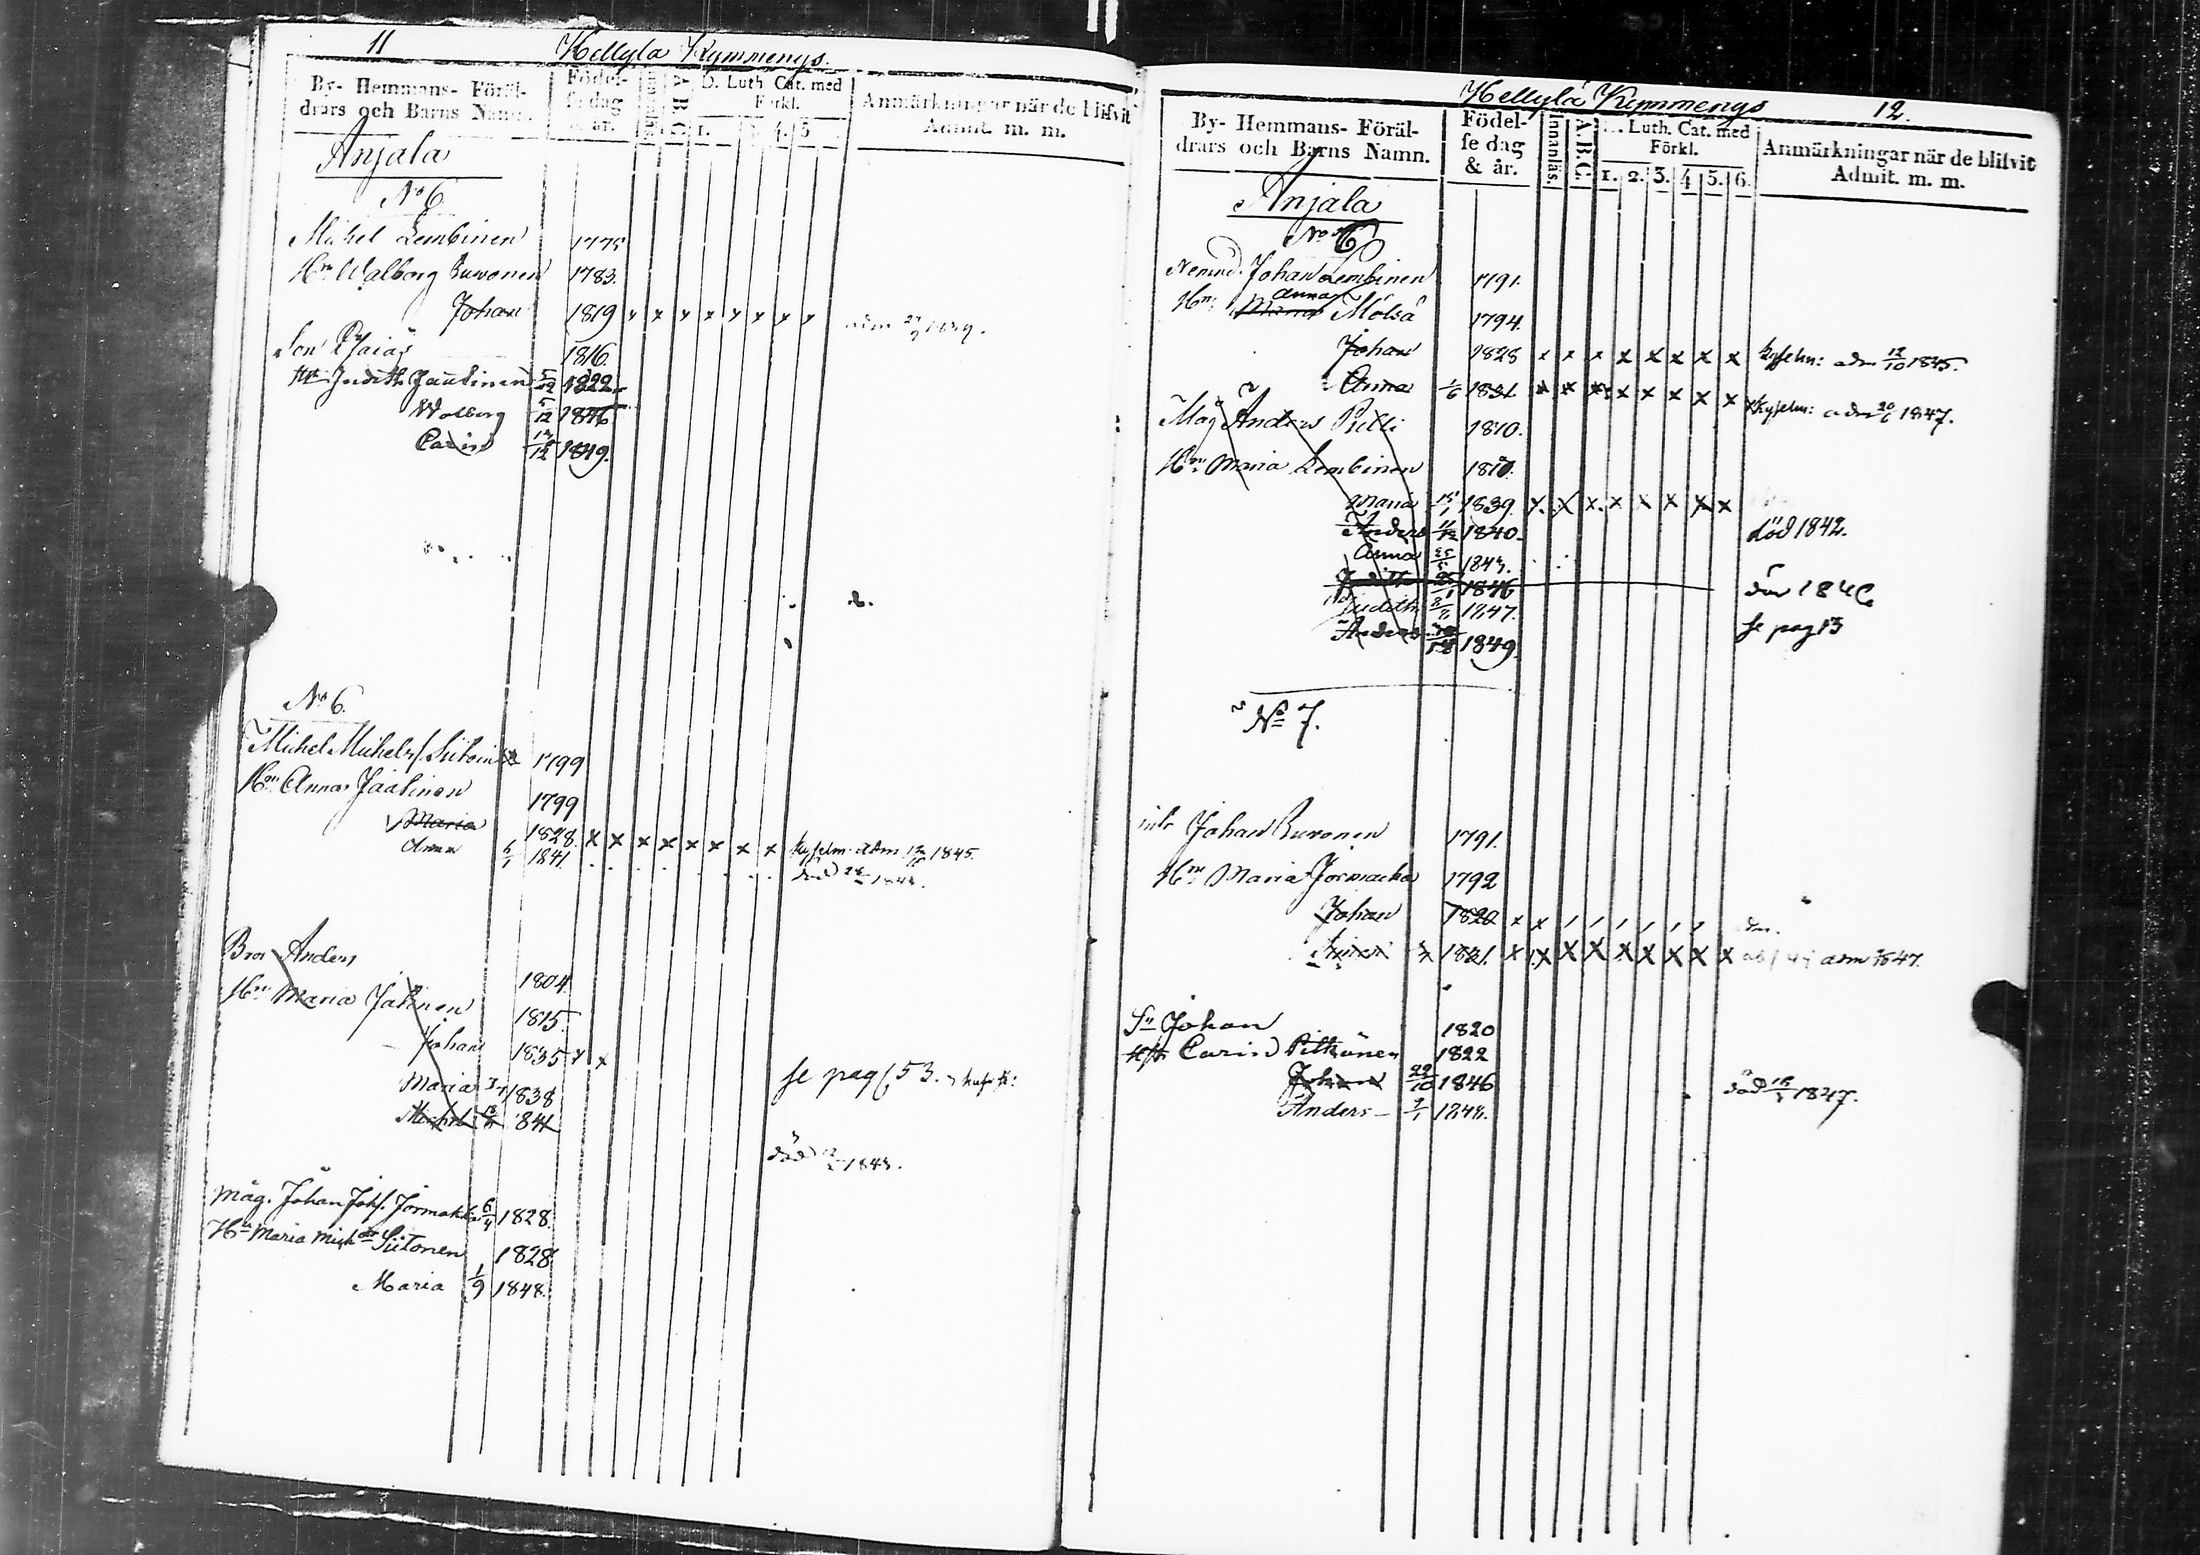 11
Kellylä Kymmenys.
By- Hemmans- Föräl-
drars och Barns Namn.
Födel-
se dag
& år.
A.B.C.
D. Luth. Cat. med
Förkl.
1. 3. 4. 5
Anmärkningar när de blifvit
Admit. m. m.
Anjala
No 6
Michel Lembinen 1775
Hn Walborg Buvonen 1783.
Johan 1819 x x x x x x x x adm
Son Esaias 1816.
Hst Judith Jaatinen 5/12 1822
Walborg 5/12 1846
Carin 1849.
No 6.
Michel Michels. 1799
Hn Anna Jaatinen 1799
Maria 1828. x x x x x x x x adm 1845.
Anna 6/1 1841. död
Bror Anders 1804
Hn Maria Jatinen 1815.
Johan 1835 x x
Maria 1838 se pag 53.
Michel 1841
död 1843.
Måg. Johan Johs. Jormakka 6/4 1828.
Ha Maria Mich dr Siitonen 1828
Maria 1/9 1848.
Kellylä Kymmenys
12.
By- Hemmans- Föräl-
drars och Barns Namn.
Födel-
se dag
& år.
Innanläs.
A.B.C.
Luth. Cat. med
Förkl.
1. 2. 3. 4 5. 6.
Anmärkningar när de blifvit
Admit. m. m.
Anjala
No 6
Nemnd. Johan Lembinen 1791.
Anna
Hn Maria Mölsä 1794.
Johan 1828 x x x x x x x x adm 12/10 1845.
Anna 1/6 1831 x x x x x x x x adm 1847.
Måg Anders Pulli 1810.
Hn Maria Lembinen 1810.
Maria 15/1 1839. x x x x x x x x
Anders 11/12 1840. död 1842.
Anna 1843.
Judith 1846 död 1846
Judith 1847. se pag 13
Anders 1849.
No 7.
Johan Buvonen 1791.
Hn Maria Jormacka 1792
Johan 1820 x x
1821. x x x x x x x x adm 47.
Sn Johan 1820
Hst Carin Pitkänen 1822
Johan 22/10 1846 död 1847.
Anders 1848.